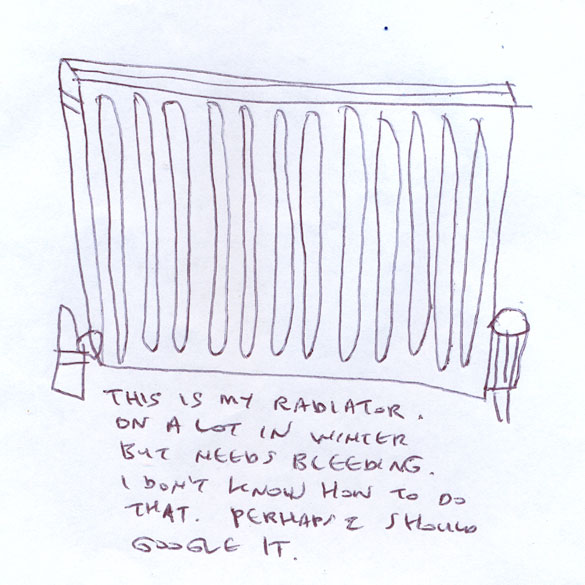 THIS IS MY RADIATOR.
ON A LOT IN WINTER
BUT NEEDS BLEEDING.
I DON'T KNOW HOW TO DO
THAT. PERHAPS I SHOULD
GOOGLE IT.